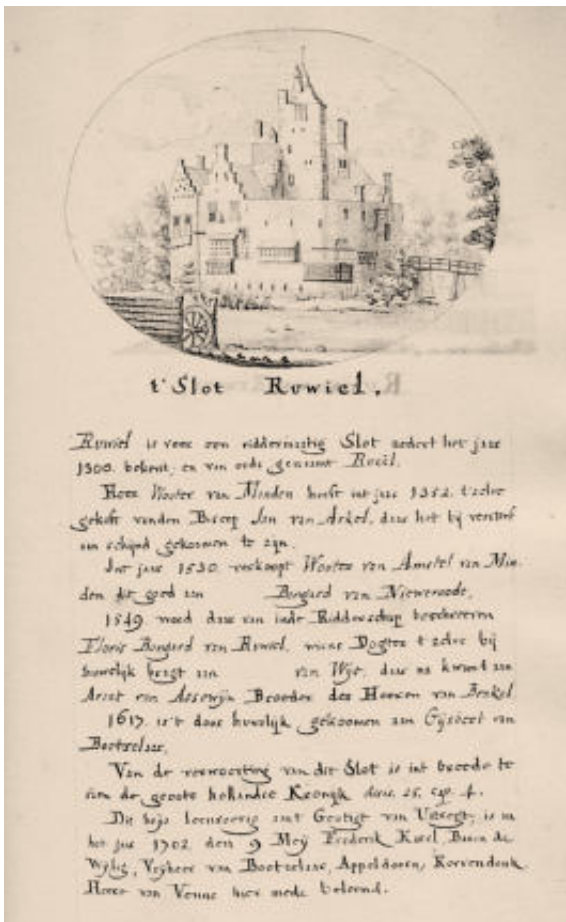 t' Slot Ruwiel.
Ruwiel is voor een riddermatig Slot sedert het jaar
1300. bekent, en van ouds genaamt Rueil.
Heer Wouter van Minden heeft int jaar 1352. t'zelve
gekoft vanden Bisscop Jan van Arkel, daar het bij versterf
aan schijnd gekoomen te zijn.
Int jaar 1530. verkoopt Wouter van Amstel van Min-
den dit goed aan Bongard van Nieweroode,
1549 word daar van inde Ridderschap bescheeven
Floris Bongard van Ruwiel, wiens Dogter t zelve bij
huwelijk bragt aan van Wijt, daar na kwamt aan
Arent van Assewijn Broeder des Heeren van Brakel
1617. is't door huwelijk gekoomen aan Gijsbert van
Boetzelaar,
Van de verwoesting van dit Slot is int breede te
zien de groote hollandse Kronyk divis. 26. cap. 4.
Dit huys leenroerig aant Gestigt van Uitregt, is in
het jaar 1702. den 9 Meij Frederik Karel, Baron de
Wijlig, Vrijheer van Boetzelaar, Appeldooren, Kervendonk
Heere van Venne hier mede beleend.